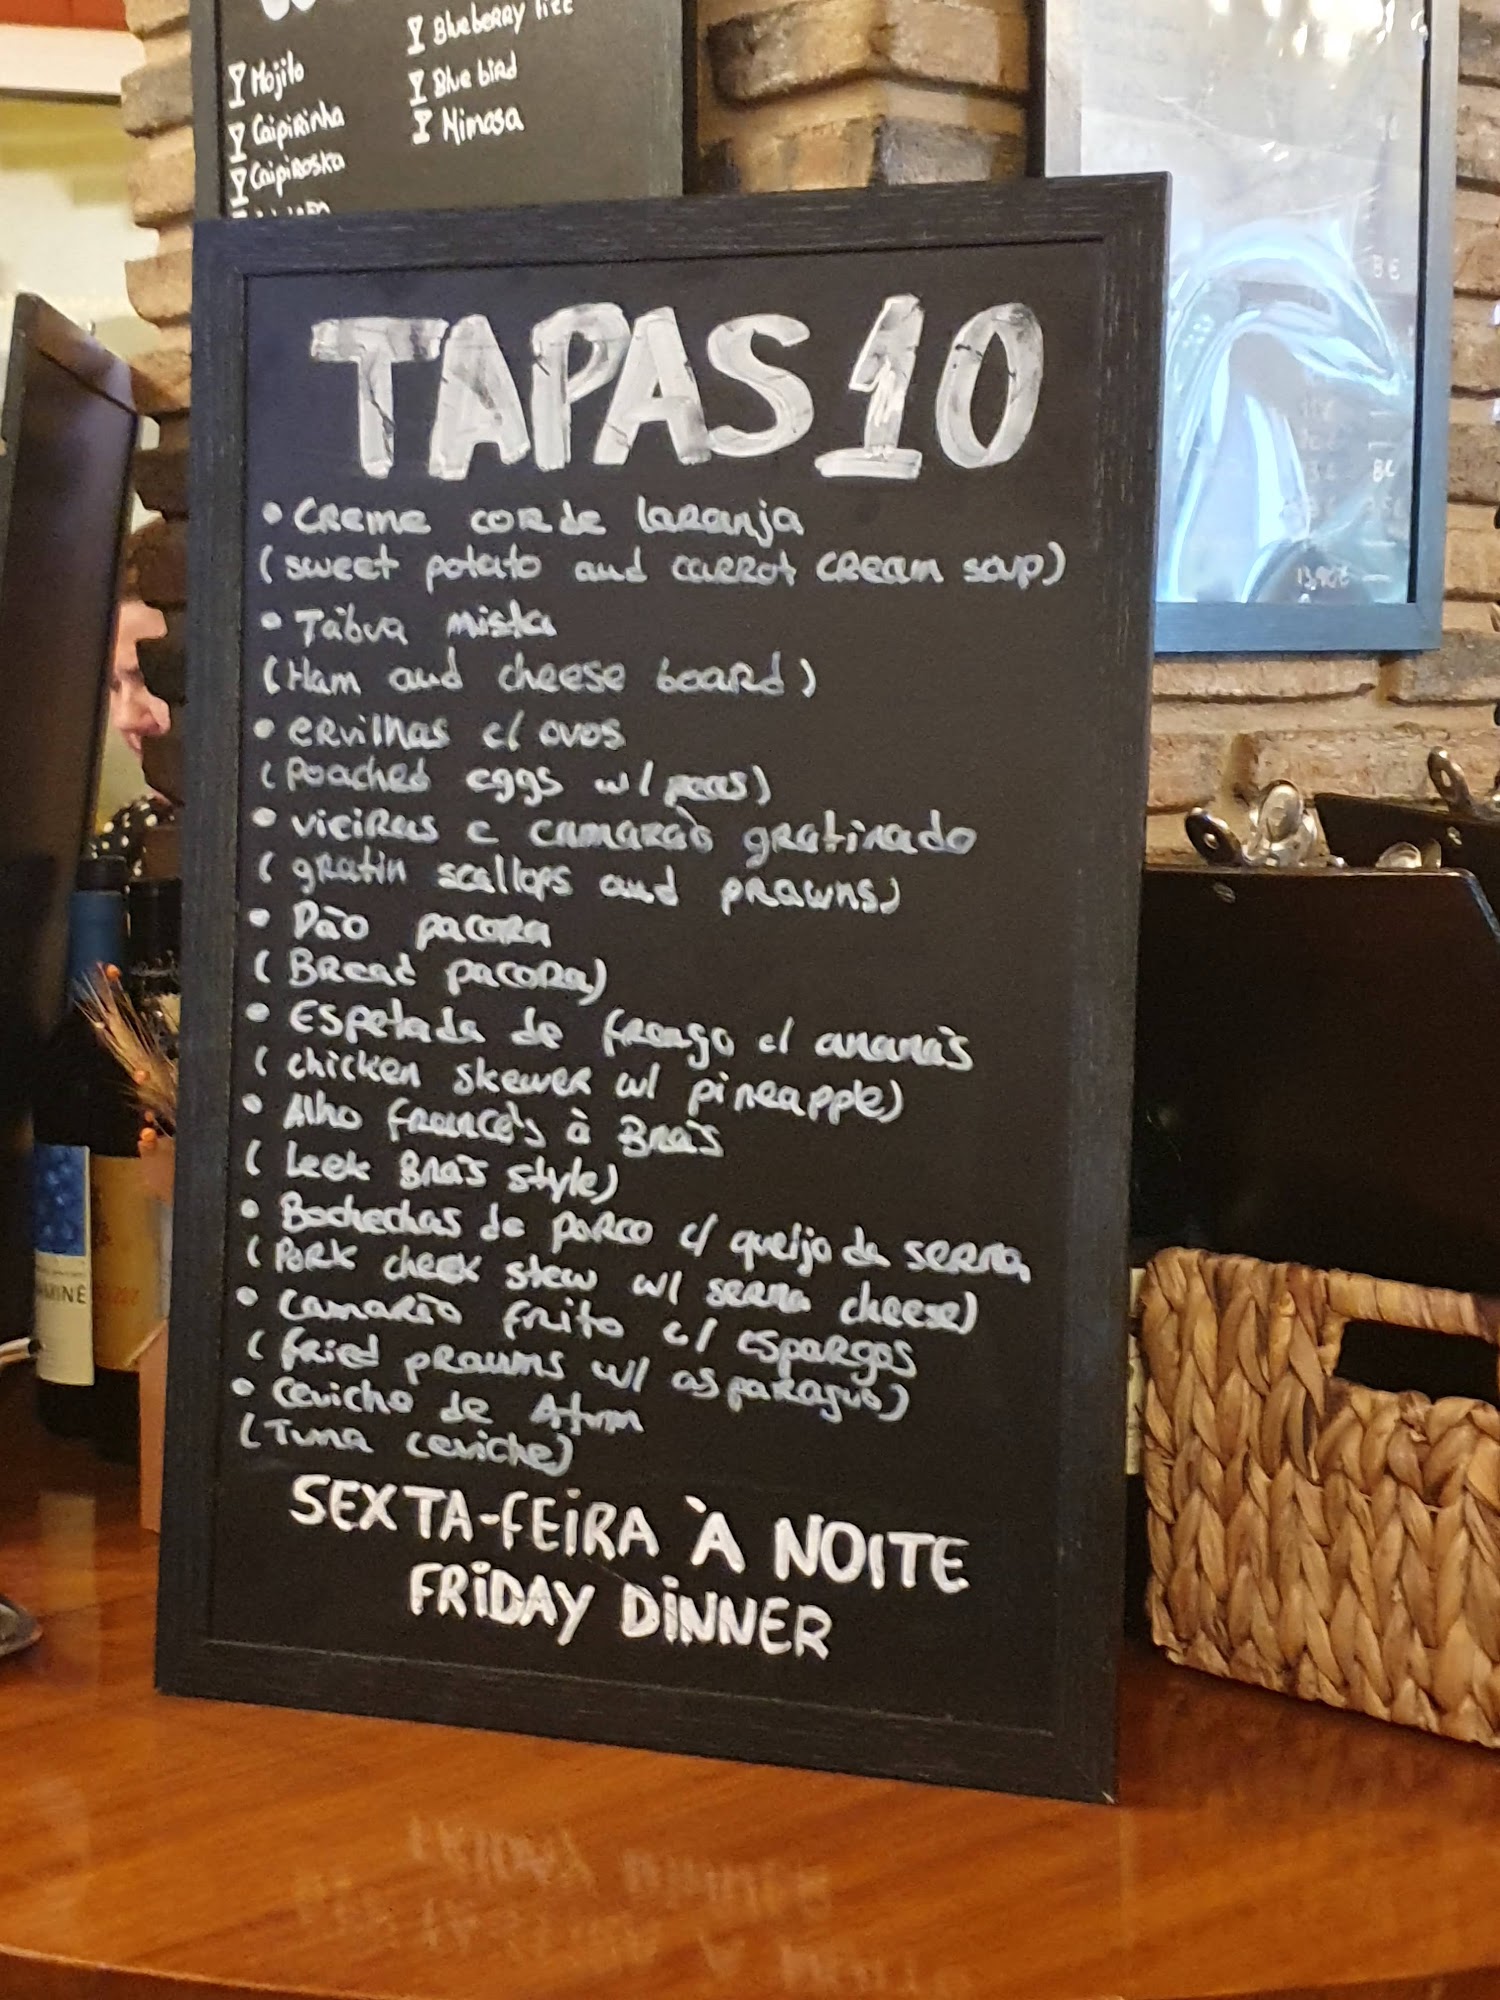 Blueberry Fizz
Mojito
Blue bird
Caipirinha
Mimosa
Caipiroska
TAPAS 10
• Creme cor de laranja
(sweet potato and carrot cream soup)
• Tábua mista
(Ham and cheese board)
• ervilhas c/ ovos
(Poached eggs w/ peas)
• vieiras e camarão gratinado
(gratin scallops and prawns)
• Pão pacora
(Bread pacora)
• Espetada de frango c/ ananás
(chicken skewer w/ pineapple)
• Alho francês à Brás
(Leek Brás style)
• Bochechas de porco c/ queijo da serra
(Pork cheek stew w/ serra cheese)
• Camarão frito c/ espargos
(fried prawns w/ asparagus)
• Ceviche de Atum
(Tuna ceviche)
SEXTA-FEIRA À NOITE
FRIDAY DINNER
8€
8€
13,90€